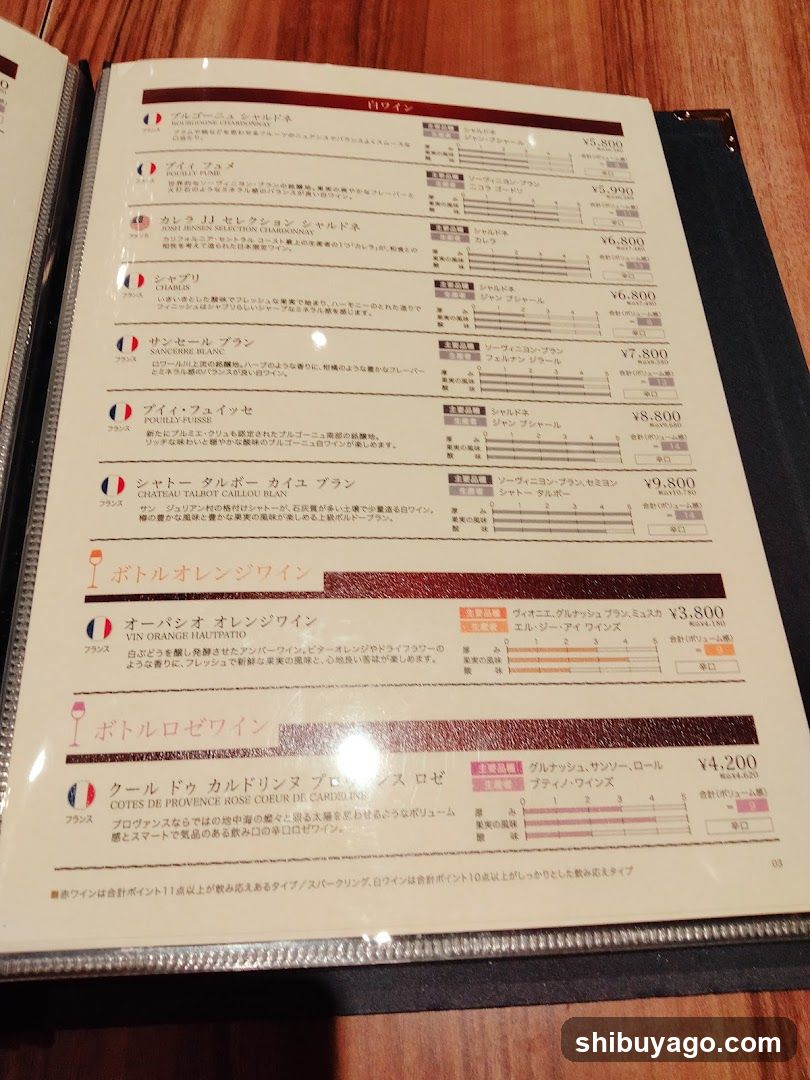 白ワイン
ブルゴーニュ シャルドネ
BOURGOGNE CHARDONNAY
フランス
主要品種 シャルドネ
生産者 ジャン・ブシャール
厚み
果実の風味
酸味
¥5,800
合計(ボリューム感)
辛口
プイィ フュメ
POUILLY FUME
世界的なソーヴィニヨン・ブランの銘醸地。果実の爽やかなフレーバーと
火打石のようなミネラル感のバランスが良い白ワイン。
フランス
主要品種 ソーヴィニヨン・ブラン
生産者 ニコラ ゴードリ
厚み
果実の風味
酸味
¥5,990
合計(ボリューム感)
辛口
カレラ JJ セレクション シャルドネ
JOSH JENSEN SELECTION CHARDONNAY
カリフォルニア・セントラル コースト最上の生産者の1つ「カレラ」が、和食との
相性を考えて造られた日本限定ワイン。
アメリカ
主要品種 シャルドネ
生産者 カレラ
厚み
果実の風味
酸味
¥6,800
税込¥7,480
合計(ボリューム感)
辛口
シャブリ
CHABLIS
いきいきとした酸味でフレッシュな果実で始まり、ハーモニーのとれた造りで
フィニッシュはシャブリらしいシャープなミネラル感を感じます。
フランス
主要品種 シャルドネ
生産者 ジャン ブシャール
厚み
果実の風味
酸味
¥6,800
税込¥7,480
合計(ボリューム感)
辛口
サンセール ブラン
SANCERRE BLANC
ロワール川上流の銘醸地。ハーブのような香りに、柑橘のような豊かなフレーバー
とミネラル感のバランスが良い白ワイン。
フランス
主要品種 ソーヴィニヨン・ブラン
生産者 フェルナン ジラール
厚み
果実の風味
酸味
¥7,800
税込¥8,580
合計(ボリューム感)
辛口
プイィ・フュイッセ
POUILLY-FUISSE
新たにプルミエ・クリュも認定されたブルゴーニュ南部の銘醸地。
リッチな味わいと穏やかな酸味のブルゴーニュ白ワインが楽しめます。
フランス
主要品種 シャルドネ
生産者 ジャン ブシャール
厚み 0 1 2 3 4 5
果実の風味
酸味
¥8,800
税込¥9,680
合計(ボリューム感)
= 14
辛口
シャトー タルボー カイユ ブラン
CHATEAU TALBOT CAILLOU BLAN
サン ジュリアン村の格付けシャトーが、石灰質が多い土壌で少量造る白ワイン。
樽の豊かな風味と豊かな果実の風味が楽しめる上級ボルドーブラン。
フランス
主要品種 ソーヴィニヨン・ブラン、セミヨン
生産者 シャトー タルボー
厚み 0 1 2 3 4 5
果実の風味
酸味
¥9,800
税込¥10,780
合計(ボリューム感)
= 14
辛口
ボトルオレンジワイン
オーパシオ オレンジワイン
VIN ORANGE HAUTPATIO
白ぶどうを醸し発酵させたアンバーワイン。ビターオレンジやドライフラワーの
ような香りに、フレッシュで新鮮な果実の風味と、心地良い苦味が楽しめます。
フランス
主要品種 ヴィオニエ、グルナッシュ ブラン、ミュスカ
生産者 エル・ジー・アイ ワインズ
厚み 0 1 2 3 4 5
果実の風味
酸味
¥3,800
税込¥4,180
合計(ボリューム感)
= 9
辛口
ボトルロゼワイン
クール ドゥ カルドリンヌ プロヴァンス ロゼ
COTES DE PROVENCE ROSE COEUR DE CARDELINE
プロヴァンスならではの地中海の燦々と照る太陽を思わせるようなボリューム
感とスマートで気品のある飲み口の辛口ロゼワイン。
フランス
主要品種 グルナッシュ、サンソー、ロール
生産者 プティノ・ワインズ
厚み 0 1 2 3 4 5
果実の風味
酸味
¥4,200
税込¥4,620
合計(ボリューム感)
= 9
辛口
03
■赤ワインは合計ポイント11点以上が飲み応えあるタイプ/スパークリング、白ワインは合計ポイント10点以上がしっかりとした飲み応えタイプ
shibuyago.com